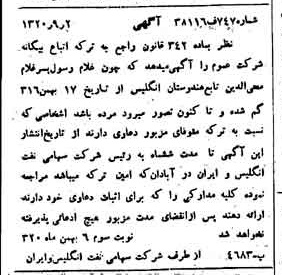 شماره ۷۴۷ف۳۸۱۱۶ آگهی ۱۳۲۰ر۹ر۲
نظر بماده ۳۴۲ قانون راجع به ترکه اتباع بیگانه
شرکت عموم را آگهی میدهد که چون غلام رسول پسر غلام
محی‌الدین تابع هندوستان انگلیس از تاریخ ۱۷ بهمن ۳۱۶
گم شده و تا کنون تصور میرود مرده باشد اشخاصی که
نسبت به ترکه متوفای مزبور دعاوی دارند از تاریخ انتشار
این آگهی تا مدت ششماه به رئیس شرکت سهامی نفت
انگلیس و ایران در آبادان که امین ترکه میباشد مراجعه
نموده کلیه مدارکی را که برای اثبات دعاوی خود دارند
ارائه دهند پس از انقضای مدت مزبور هیچ ادعائی پذیرفته
نخواهد شد نوبت سوم ۶ بهمن ماه ۳۲۰
پ-۴۶۸۳ از طرف شرکت سهامی نفت انگلیس و ایران